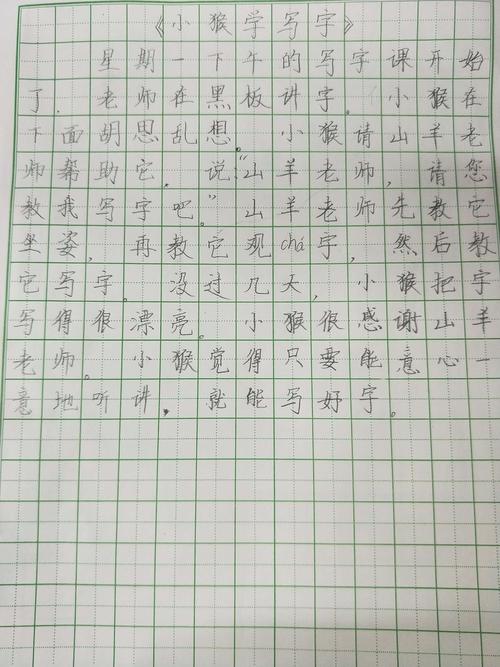 《小猴学写字》
星期一下午的写字课开始
了．老师在黑板讲字。小猴在
下面胡思乱想。小猴请山羊老
师帮助它，说："山羊老师，请您
教我写字吧。"山羊老师先教它
坐姿，再教它观chá字，然后教
它写字。没过几天，小猴把字
写得很漂亮。小猴很感谢山羊
老师。小猴觉得只要能意心一
意地听讲，就能写好字。